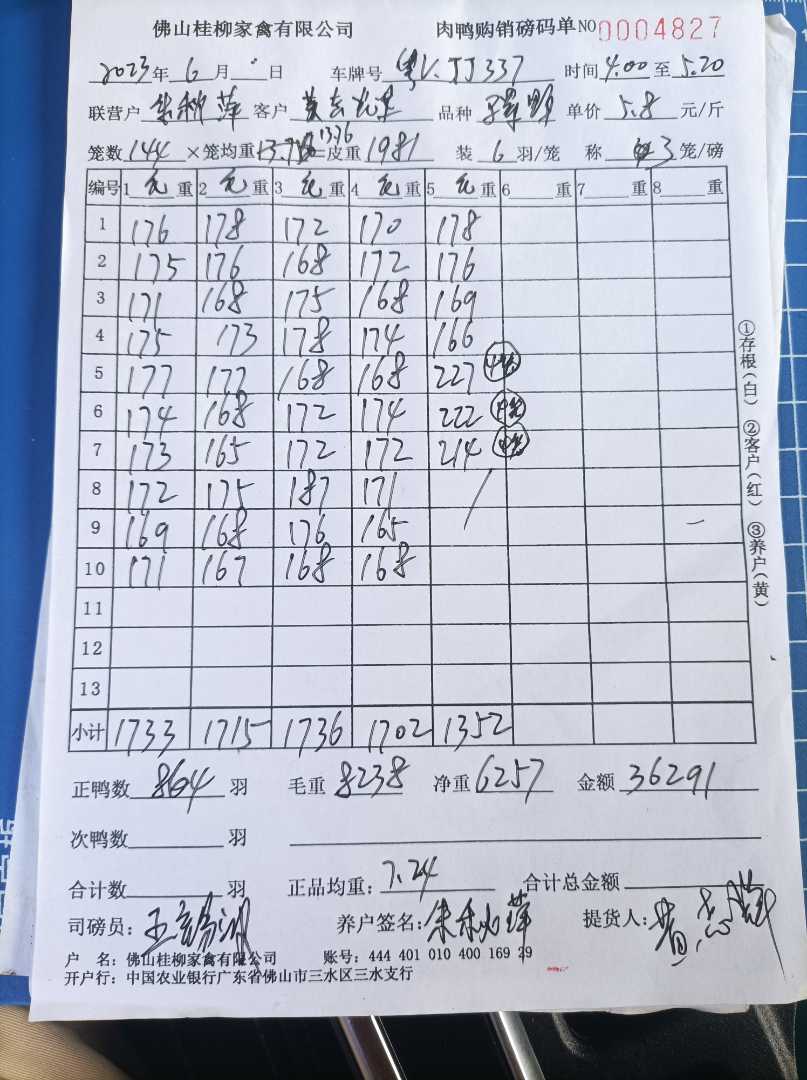 佛山桂柳家禽有限公司 肉鸭购销磅码单 NO 0004827
2023年 6月 日 车牌号 粤V.JJ337 时间 4.00 至 5.20
联营户 客户 品种 单价 5.8 元/斤
笼数 144 ×笼均重 13.76 =皮重 1981 装 6 羽/笼 称 3 笼/磅
编号 1 毛 重 2 毛 重 3 毛 重 4 毛 重 5 毛 重 6 重 7 重 8 重
1 176 178 172 170 178
2 175 176 168 172 176
3 171 168 175 168 169
4 175 173 178 174 166
5 177 177 168 168 227 4笼
6 174 168 172 174 222 4笼
7 173 165 172 172 214 4笼
8 172 175 187 171 /
9 169 168 176 165
10 171 167 168 168
11
12
13
小计 1733 1715 1736 1702 1352
①存根(白) ②客户(红) ③养户(黄)
正鸭数 864 羽 毛重 8238 净重 6257 金额 36291
次鸭数 羽
合计数 羽 正品均重: 7.24 合计总金额
司磅员: 养户签名: 提货人:
户 名: 佛山桂柳家禽有限公司 账号: 444 401 010 400 169 29
开户行: 中国农业银行广东省佛山市三水区三水支行